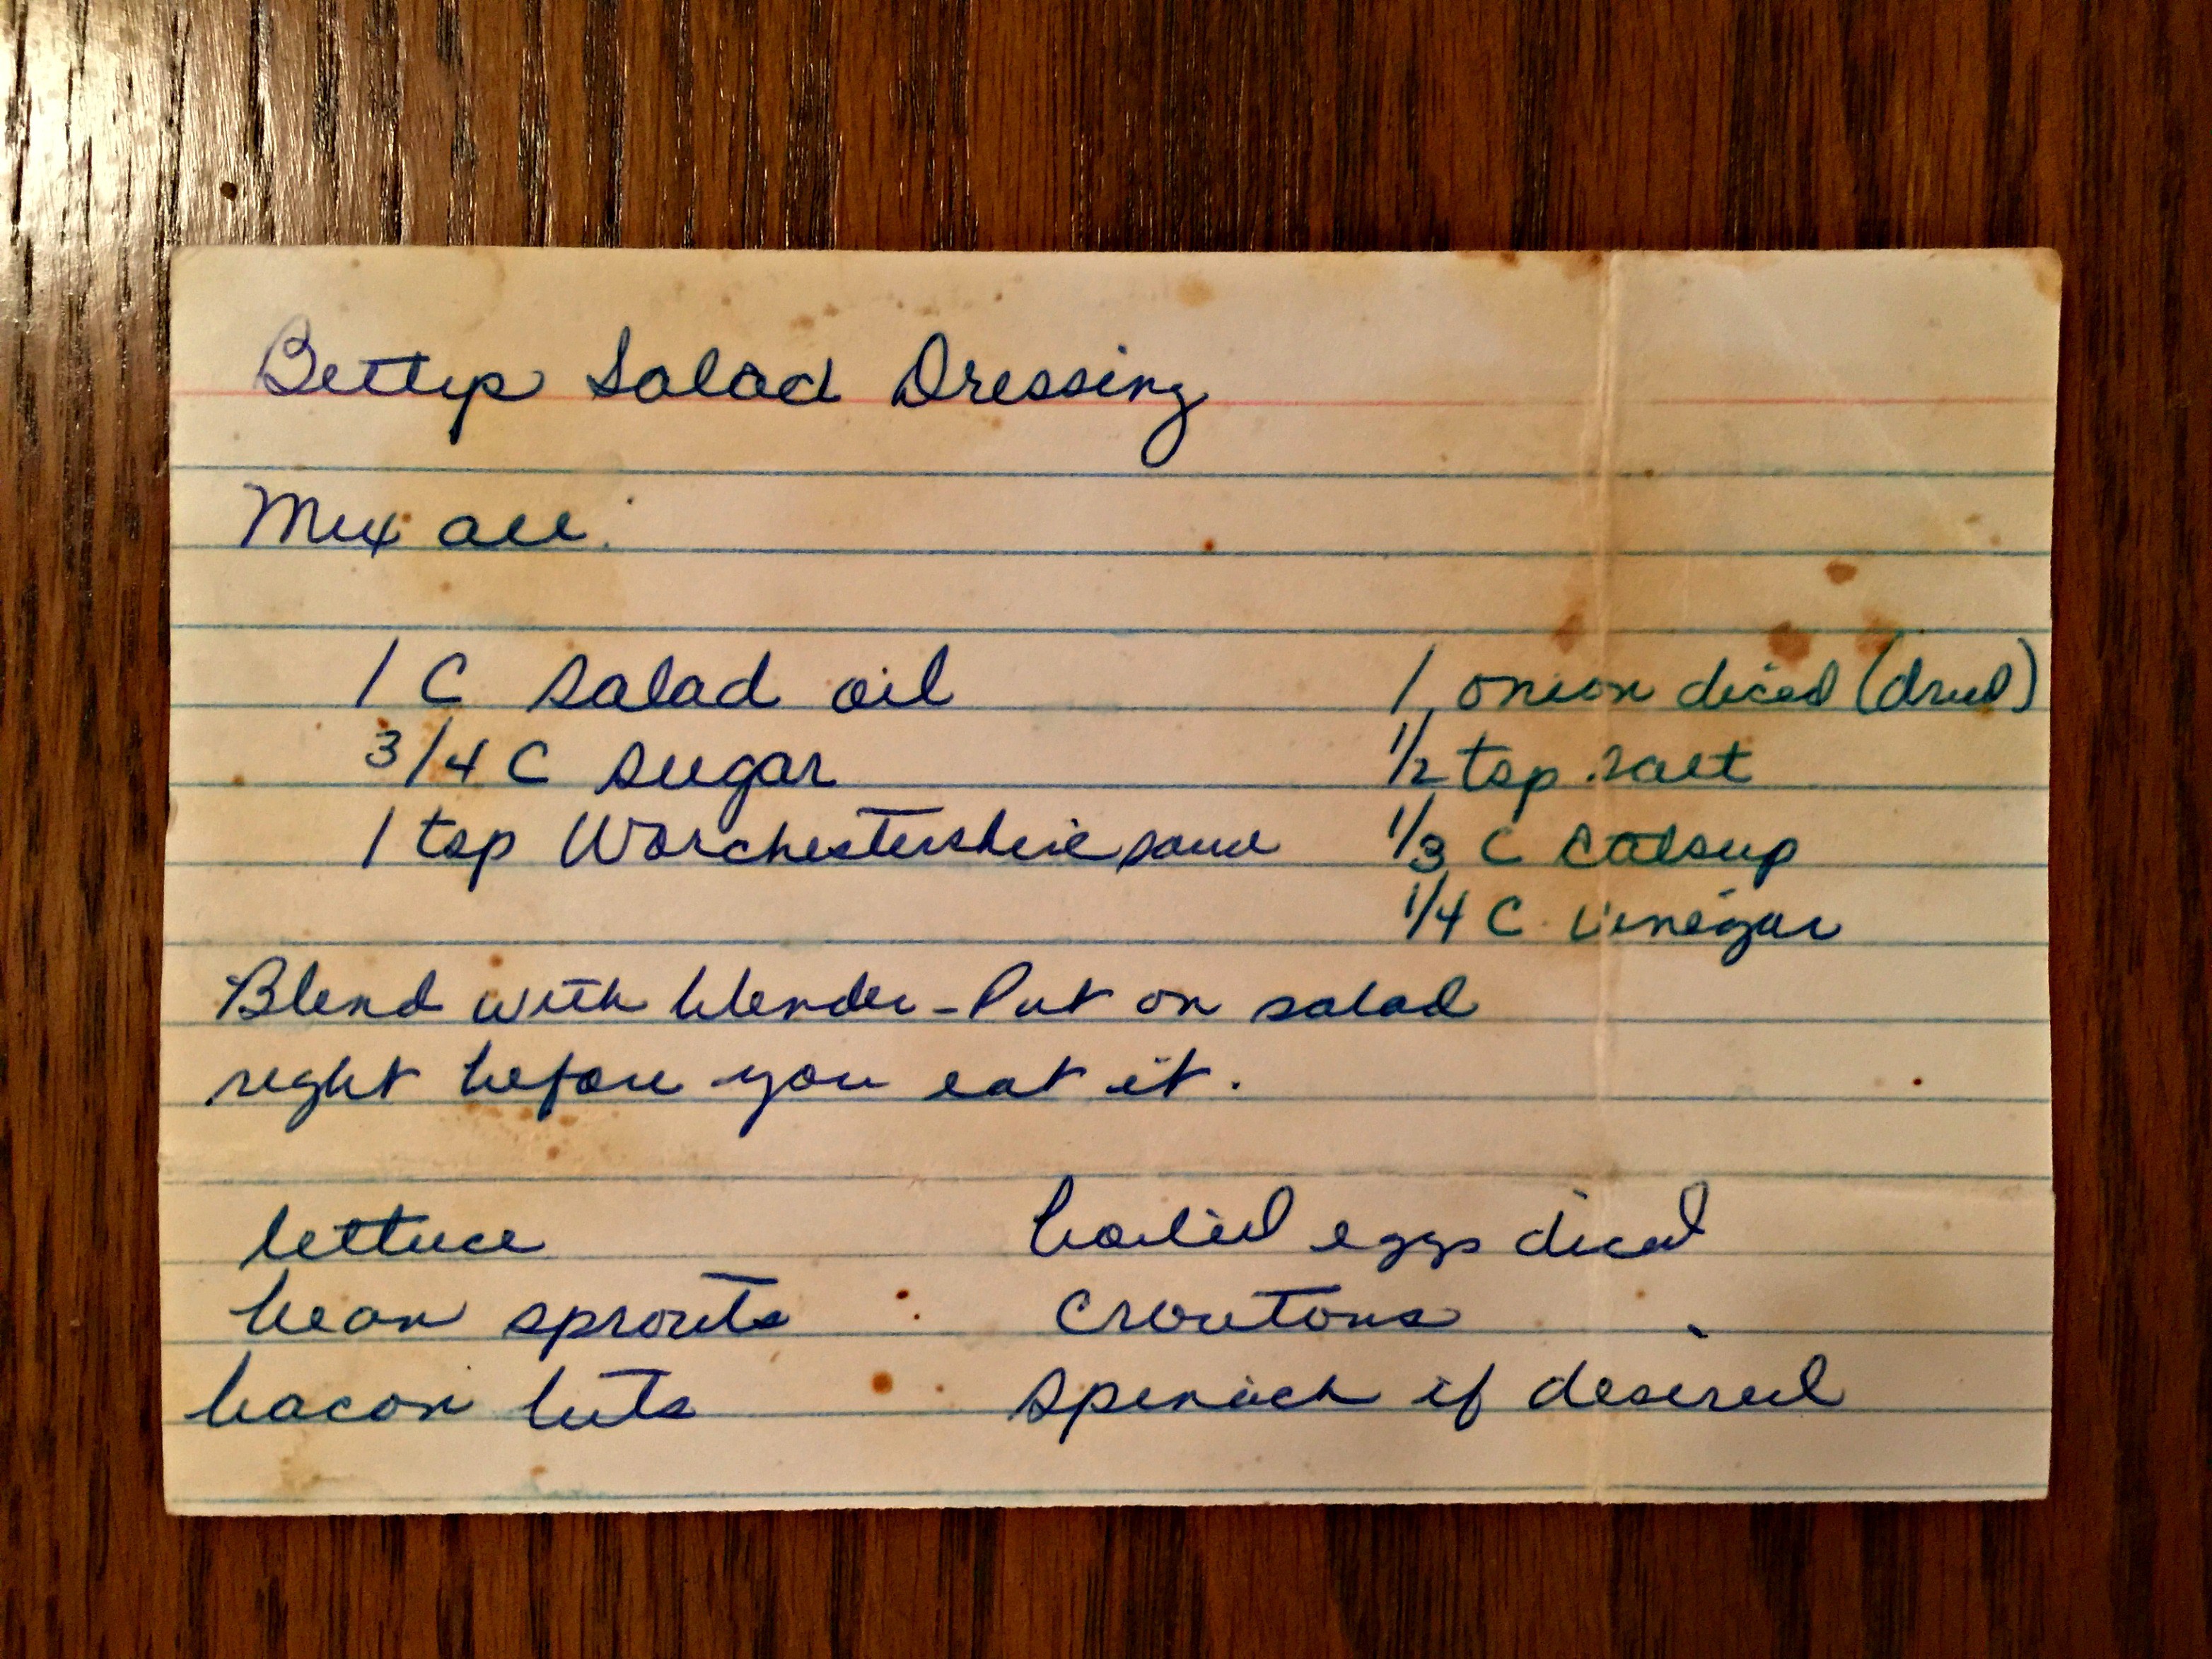 Bettys Salad Dressing
Mix all:
1 C salad oil
3/4 C sugar
1 tsp Worchestershire sauce
1 onion diced (dried)
1/2 tsp salt
1/3 C catsup
1/4 C vinegar
Blend with blender - Put on salad
right before you eat it.
lettuce
bean sprouts
bacon bits
boiled eggs diced
croutons
spinach if desired